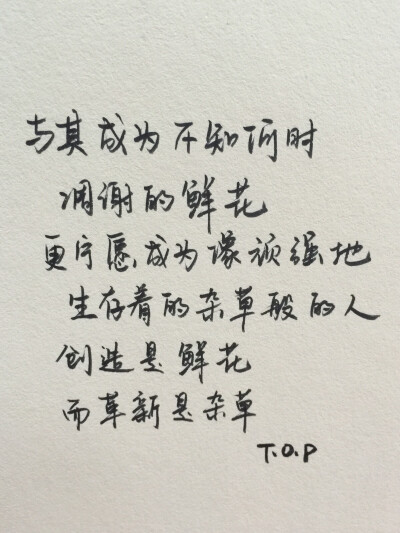 与其成为不知何时
凋谢的鲜花
更宁愿成为像顽强地
生存着的杂草般的人
创造是鲜花
而革新是杂草
T.O.P